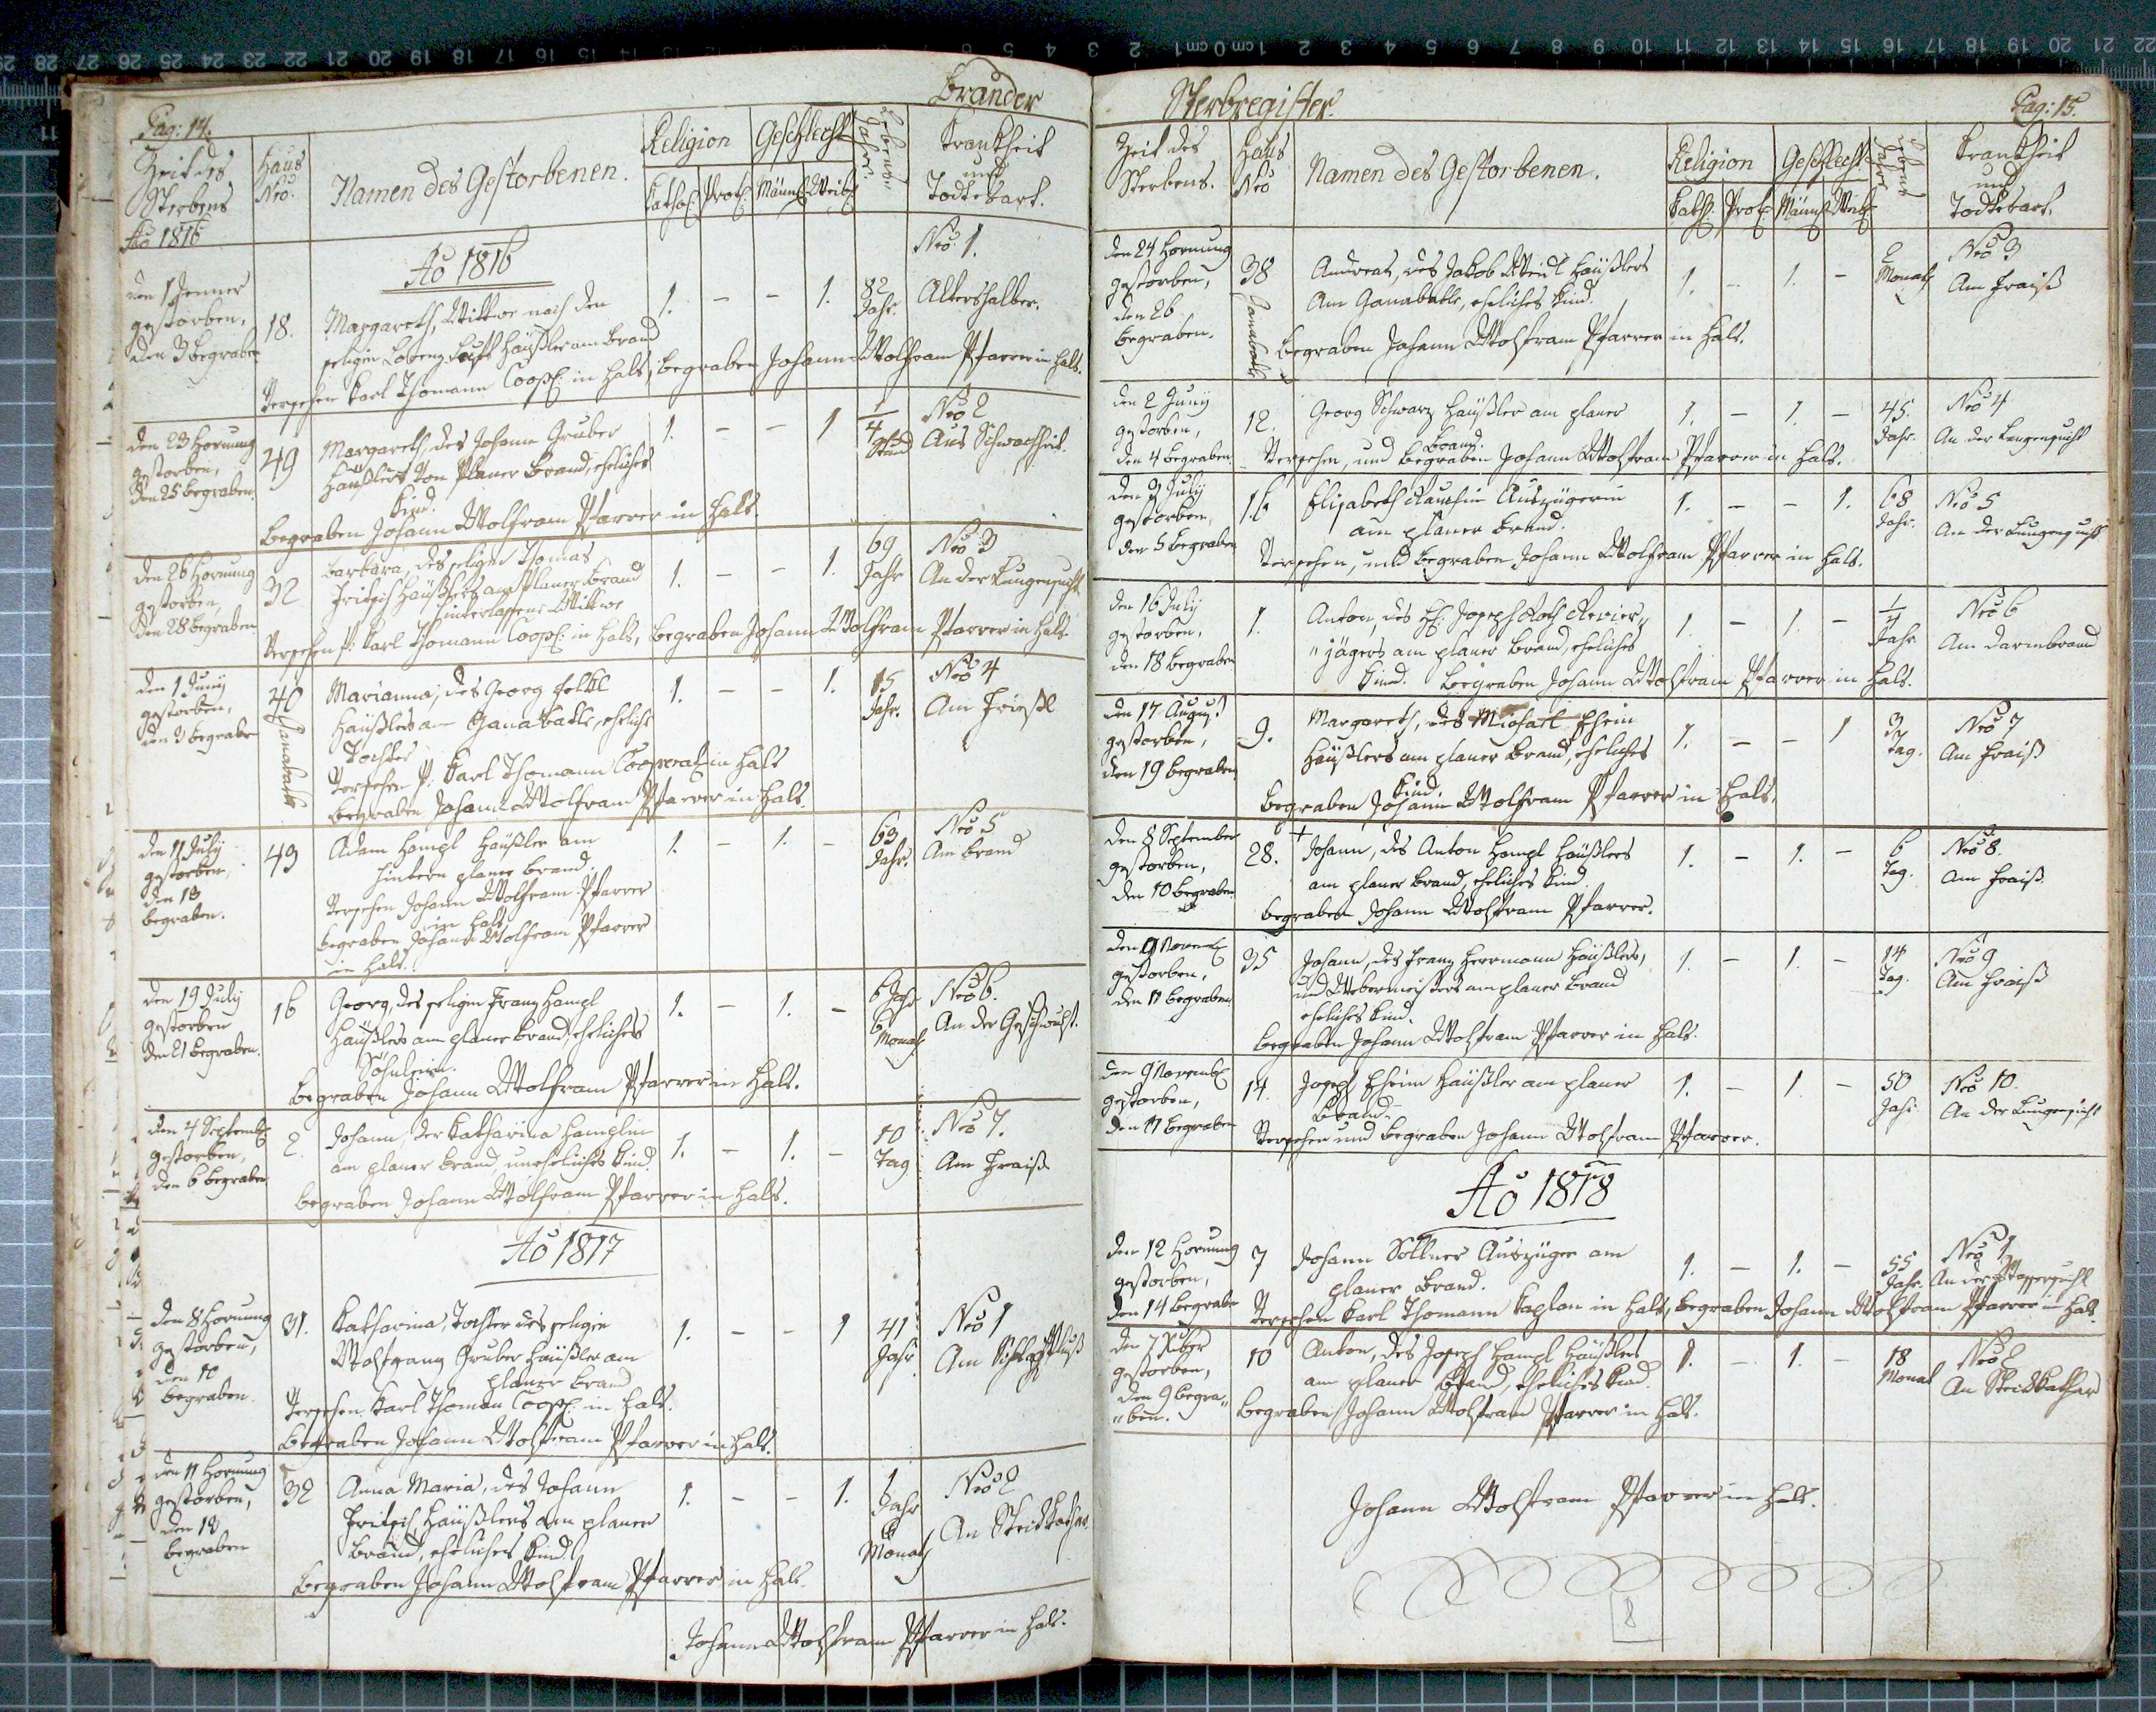 Brander
Pag: 14.
Zeit des
Sterbens
Ao 1816
Haus
Nro.
Namen des Gestorbenen.
Religion
Kathol: Prot:
Geschlecht
Männl Weibl
Lebens-
Jahre.
Krankheit
und
Todtesart.
Ao 1816
den 1 Jenner
gestorben,
den 3 begraben
18.
Margareth, Wittwe nach den
seligen Lorenz Häußler am Brand
1. - - 1.
82
Jahr.
Nro 1.
Altershalber.
Versehen Karl Thomann Coop: in Hals, begraben Johann Wolfram Pfarrer in Hals.
den 23 Hornung
gestorben,
den 25 begraben.
49
Margareth, des Johann Gruber
Häußlers von Planer Brand, eheliches
Kind.
1. - - 1
1/4
Stund
Nro 2
Aus Schwachheit.
begraben Johann Wolfram Pfarrer in Hals.
den 26 Hornung
gestorben,
den 28 begraben
32
Barbara, des seligen Thomas
Fritsch Häußlers am Planer Brand
hinterlassene Wittwe
1. - - 1.
69
Jahr
Nro 3
An der Lungensucht
Versehen P: Karl Thomann Coop: in Hals, begraben Johann Wolfram Pfarrer in Hals
den 1 Juny
gestorben,
den 3 begraben
40
Marianna, des Georg
Häußlers am eheliche
Tochter
1. - - 1.
15
Jahr.
Nro 4
Am
Versehen P: Karl Thomann Cooperat: in Hals
begraben Johann Wolfram Pfarrer in Hals.
den 11 July
gestorben,
den 13
begraben.
43
Adam Hampl Häußler am
hintern planer Brand.
Versehen Johann Wolfram Pfarrer
in Hals
begraben Johann Wolfram Pfarrer
in Hals.
1. - 1. -
63
Jahr.
Nro 5
Am Brand
den 19 July
gestorben
den 21 begraben.
16
Georg, des seligen Franz Hampl
Häußlers am planer Brand eheliches
Söhnlein.
1. - 1. -
6 Jahr
6
Monath
Nro 6.
An der Geschwulst.
begraben Johann Wolfram Pfarrer in Hals.
den 4 Septemb
gestorben,
den 6 begraben
2.
Johann, der Katharina Hamplin
am planer Brand, uneheliches Kind.
1. - 1. -
10
Tag
Nro 7.
Am Fraiß
begraben Johann Wolfram Pfarrer in Hals.
Ao 1817
den 8 Hornung
gestorben,
den 10
begraben.
31.
Katharina, Tochter des seligen
Wolfgang Gruber Häußler am
planer Brand
1. - - 1
41
Jahr.
Nro 1
Am Schlagfluß
Versehen Karl Thoman Coop: in Hals.
begraben Johann Wolfram Pfarrer in Hals.
den 11 Hornung
gestorben,
den 13
begraben
32
Anna Maria, des Johann
Fritsch, Häußlers am planer
Brand, eheliches Kind.
1. - - 1.
1
Jahr
6
Monath
Nro 2
An Steickkathar
begraben Johann Wolfram Pfarrer in Hals.
Johann Wolfram Pfarrer in Hals.
Sterbregister.
Pag: 15.
Zeit des
Sterbens.
Haus
Nro
Namen des Gestorbenen.
Religion
Kath: Prot:
Geschlecht
Männl Weibl
Lebens
Jahre
Krankheit
und
Todtesart.
den 24 Hornung
gestorben,
den 26
begraben.
38
Andreas, des Jakob Weidl Häußlers
Am eheliches Kind.
1. - 1. -
2
Monath
Nro 3
Am Fraiß
begraben Johann Wolfram Pfarrer in Hals.
den 2 Juny
gestorben,
den 4 begraben.
12.
Georg Schwarz Häußler am planer
Brand.
1. - 1. -
45.
Jahr.
Nro 4
An der Lungensucht
Versehen, und begraben Johann Wolfram Pfarrer in Hals.
den 3 July
gestorben,
den 5 begraben
16
Elisabeth Auszügerin
am planer Brand.
1. - - 1.
68
Jahr.
Nro 5
An der Lungensucht
Versehen, und begraben Johann Wolfram Pfarrer in Hals.
den 16 July
gestorben,
den 18 begraben
1.
Anton, des H: Joseph Revier„
„jägers am planer Brand, eheliches
Kind. begraben Johann Wolfram Pfarrer in Hals.
1. - 1. -
1/4
Jahr
Nro 6
Am Darmbrand
den 17 August
gestorben,
den 19 begraben.
9.
Margareth, des Michael
Häußlers am planer Brand, eheliches
Kind.
1. - - 1
3
Tag.
Nro 7
Am Fraiß
begraben Johann Wolfram Pfarrer in Hals.
den 8 September
gestorben,
den 10 begraben
28.
Johann, des Anton Hampl Häußlers
am planer Brand, eheliches Kind.
1. - 1. -
6
Tag.
Nro 8.
Am Fraiß
begraben Johann Wolfram Pfarrer.
den 9 Novemb
gestorben,
den 11 begraben
35
Johann, des Franz Herrmann Häußlers,
und Webermeisters am planer Brand
eheliches Kind.
1. - 1. -
14
Tag.
Nro 9
Am Fraiß
begraben Johann Wolfram Pfarrer in Hals.
den 9 Novemb
gestorben,
den 11 begraben
14.
Joseph Häußler am planer
Brand.
1. - 1 -
50
Jahr.
Nro 10.
An der Lungensucht
Versehen und begraben Johann Wolfram Pfarrer.
Ao 1818
den 12 Hornung
gestorben,
den 14 begrabe
7
Johann Söllner Auszüger am
planer Brand.
1. - 1. -
55
Jahr.
Nro 1
An der Wassersucht
Versehen Karl Thomann Kaplan in Hals, begraben Johann Wolfram Pfarrer in Hals.
den 7
gestorben,
den 9 begra„
„ben.
10
Anton, des Joseph Hampl Häußlers
am planer Brand, eheliches Kind.
1. - 1. -
18
Monat
Nro 2
An Steickkathar
begraben Johann Wolfram Pfarrer in Hals.
Johann Wolfram Pfarrer in Hals.
8